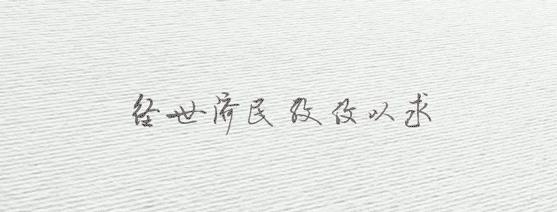 经世济民孜孜以求